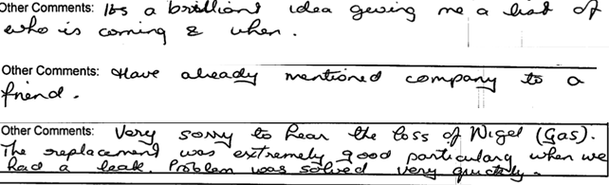 Other Comments: Its a brilliant idea geving me a list of
who is coming & when.
Other Comments: Have already mentioned company to a
friend.
Other Comments: Very sorry to hear the loss of Nigel (Gas).
The replacement was extremely good particulary when we
had a leak. Problem was solved very quickly.